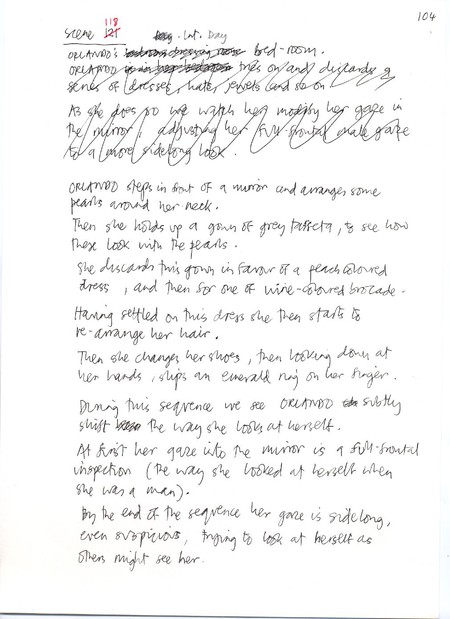 104
118
Scene 121 Int. Day
ORLANDO's bedroom dressing room bed-room.
ORLANDO is in her bedroom tries on and discards a
series of dresses, hats, jewels and so on
As she does so we watch her modify her gaze in
the mirror, adjusting her full-frontal male gaze
to a more sidelong look.
ORLANDO steps in front of a mirror and arranges some
pearls around her neck.
Then she holds up a gown of grey taffeta, to see how
these look with the pearls.
She discards this gown in favour of a peach coloured
dress, and then for one of wine-coloured brocade.
Having settled on this dress she then starts to
re-arrange her hair.
Then she changes her shoes, then looking down at
her hands, slips an emerald ring on her finger.
During this sequence we see ORLANDO subtly
shift the way she looks at herself.
At first her gaze into the mirror is a full-frontal
inspection (the way she looked at herself when
she was a man).
By the end of the sequence her gaze is sidelong,
even suspicious, trying to look at herself as
others might see her.